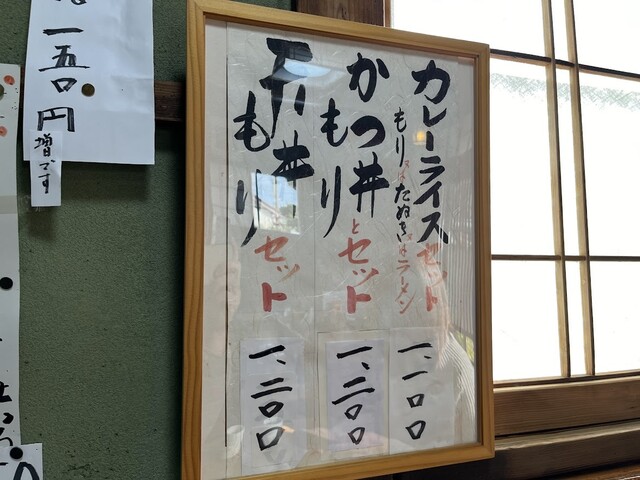 カレーライスセット
もり又はたぬき又はラーメン
一、一〇〇
かつ丼とセット
もり
一、二〇〇
天丼セット
もり
一、二〇〇
一五〇円
増です